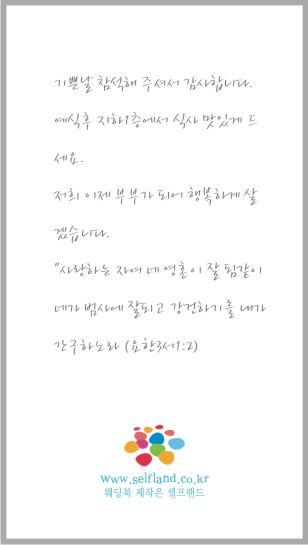 기쁜날 참석해 주셔서 감사합니다.
예식후 지하1층에서 식사 맛있게 드
세요.
저희 이제 부부가 되어 행복하게 살
겠습니다.
"사랑하는 자여 네 영혼이 잘 됨같이
네가 범사에 잘되고 강건하기를 내가
간구하노라 (요한3서1:2)
www.selfland.co.kr
웨딩북 제작은 셀프랜드